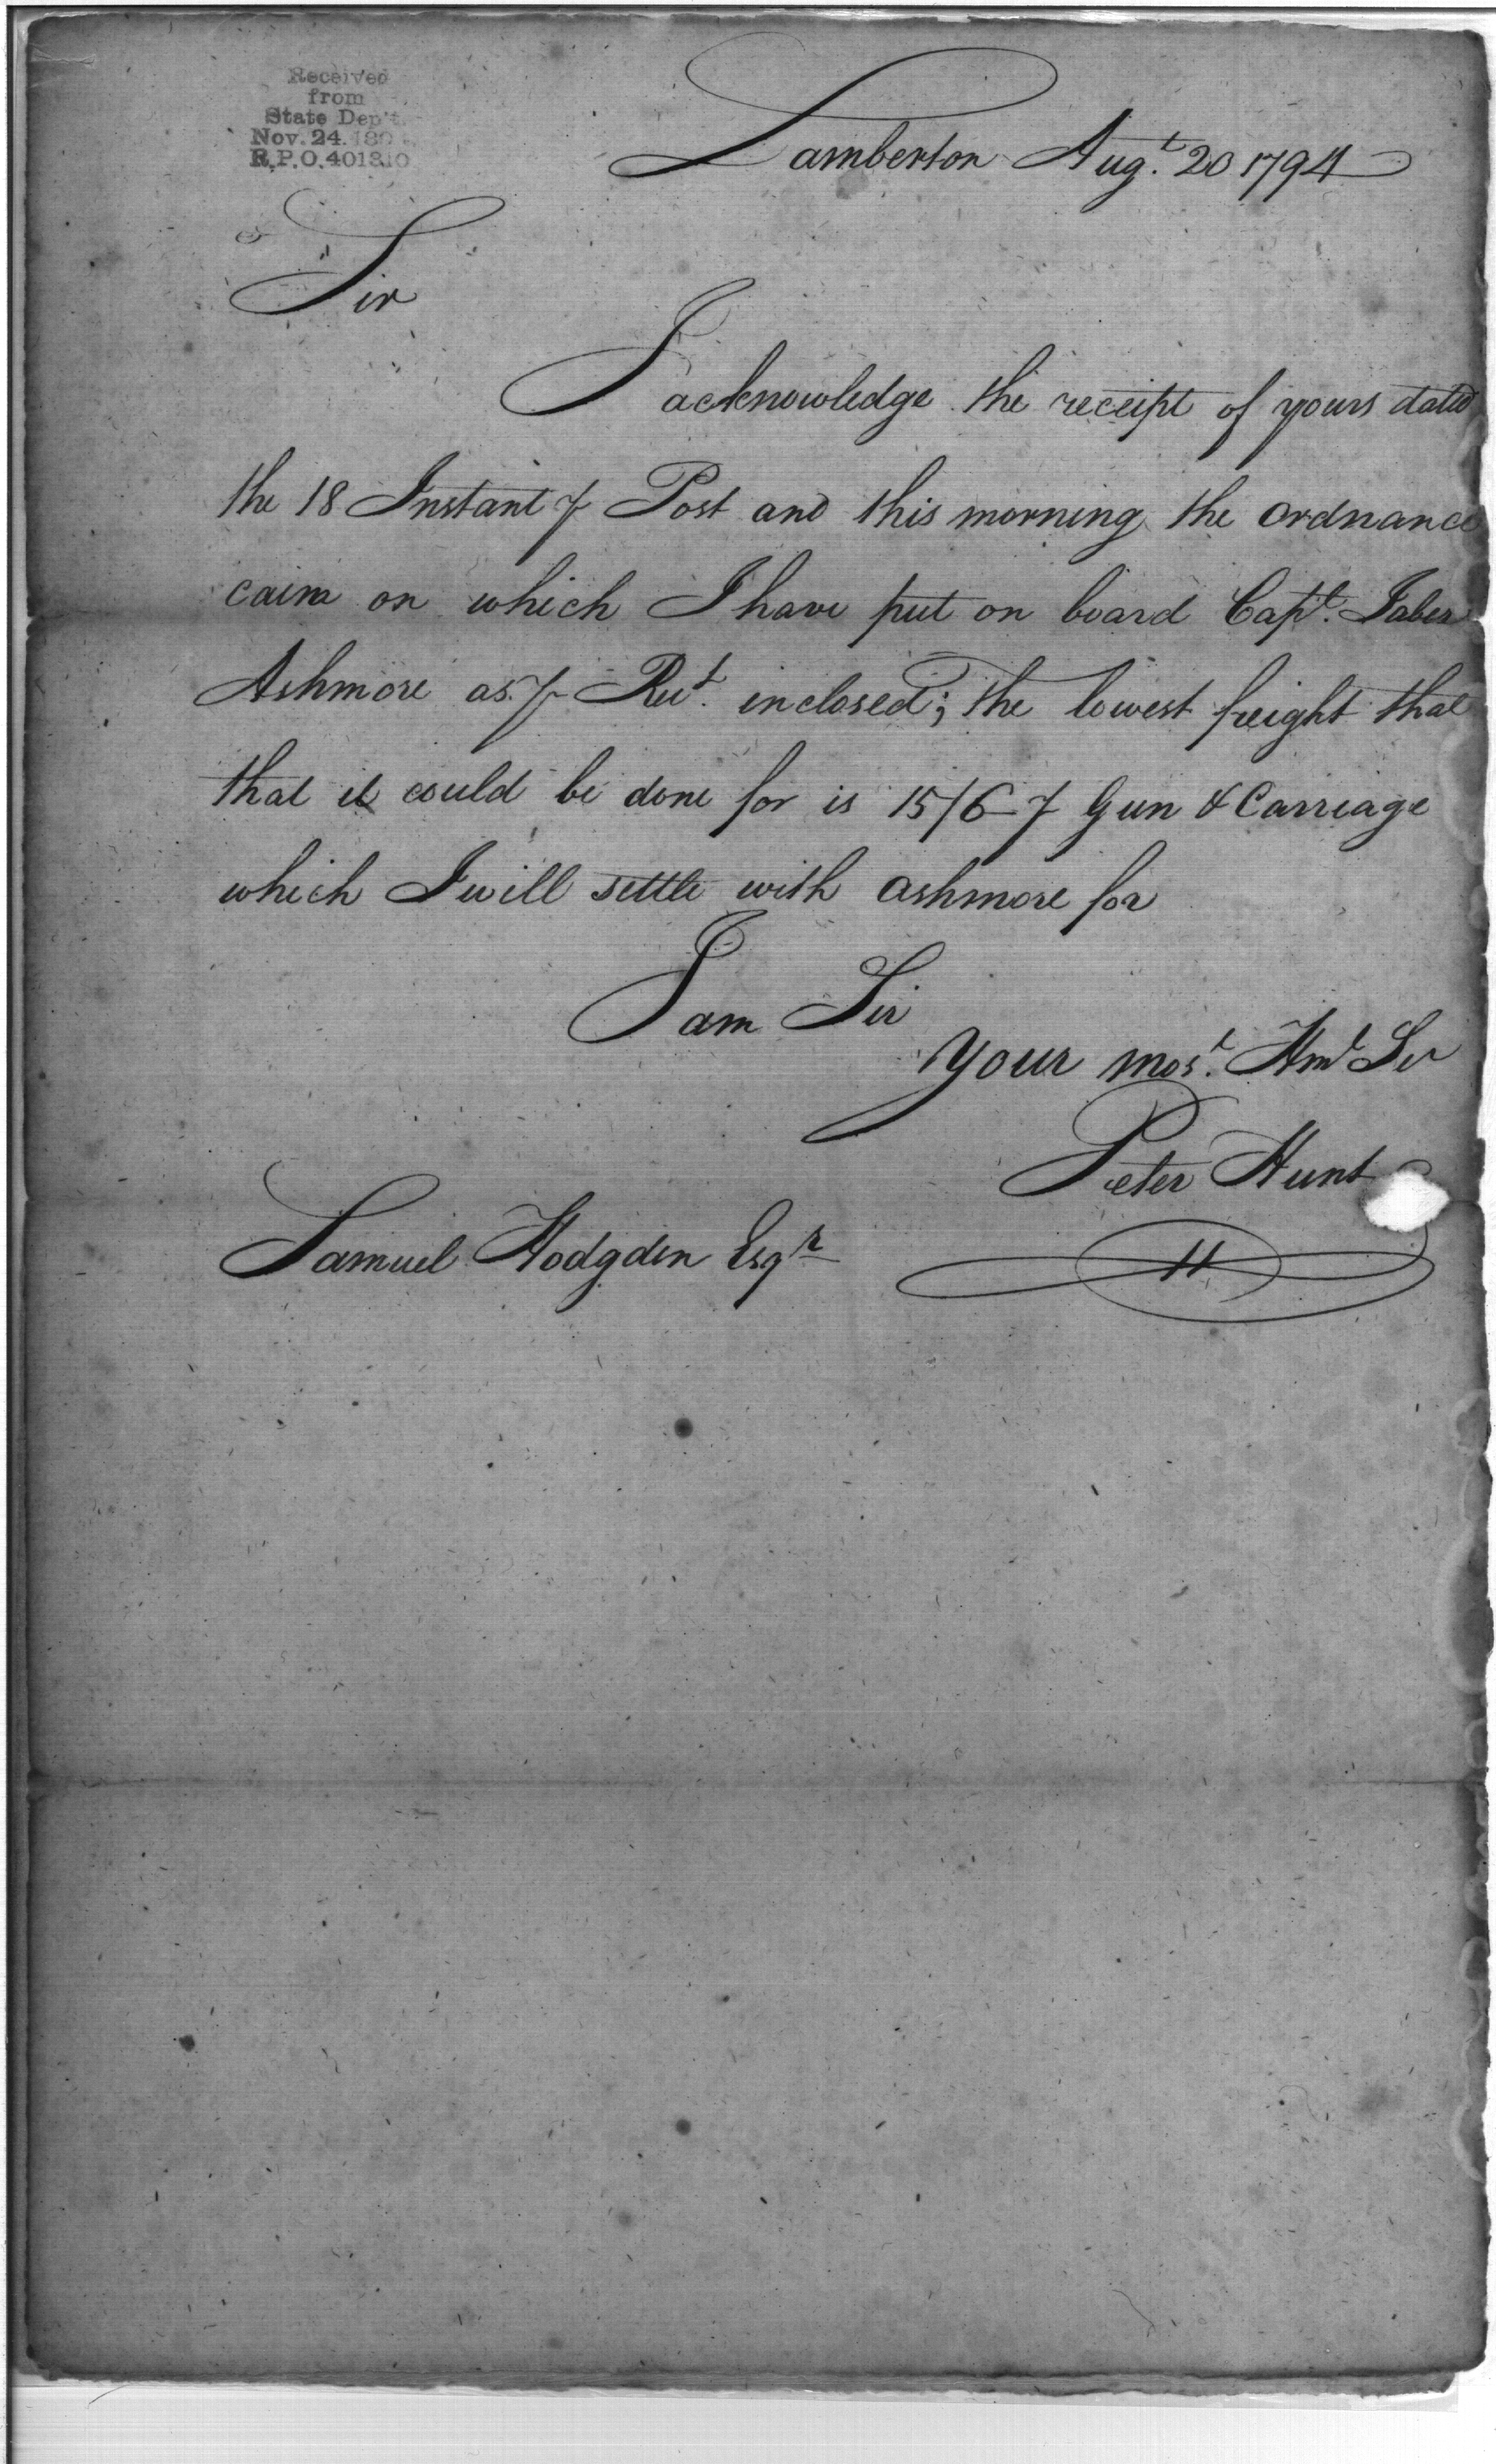 Received
from
State Dep't.
Nov. 24. 
R.P.O. 401310
Lamberton Augt. 20 1794
Sir
I acknowledge the receipt of yours dated
the 18 Instant ⅌ Post and this morning the ordnance
caim on which I have put on board Capt. Jaber
Ashmore as ⅌ Rect. inclosed; the lowest freight that
that it could be done for is 15/6 ⅌ Gun & Carriage
which I will settle with ashmore for
I am Sir
your most. Hmb Ser
Peter Hunt
Samuel Hodgden Esqr